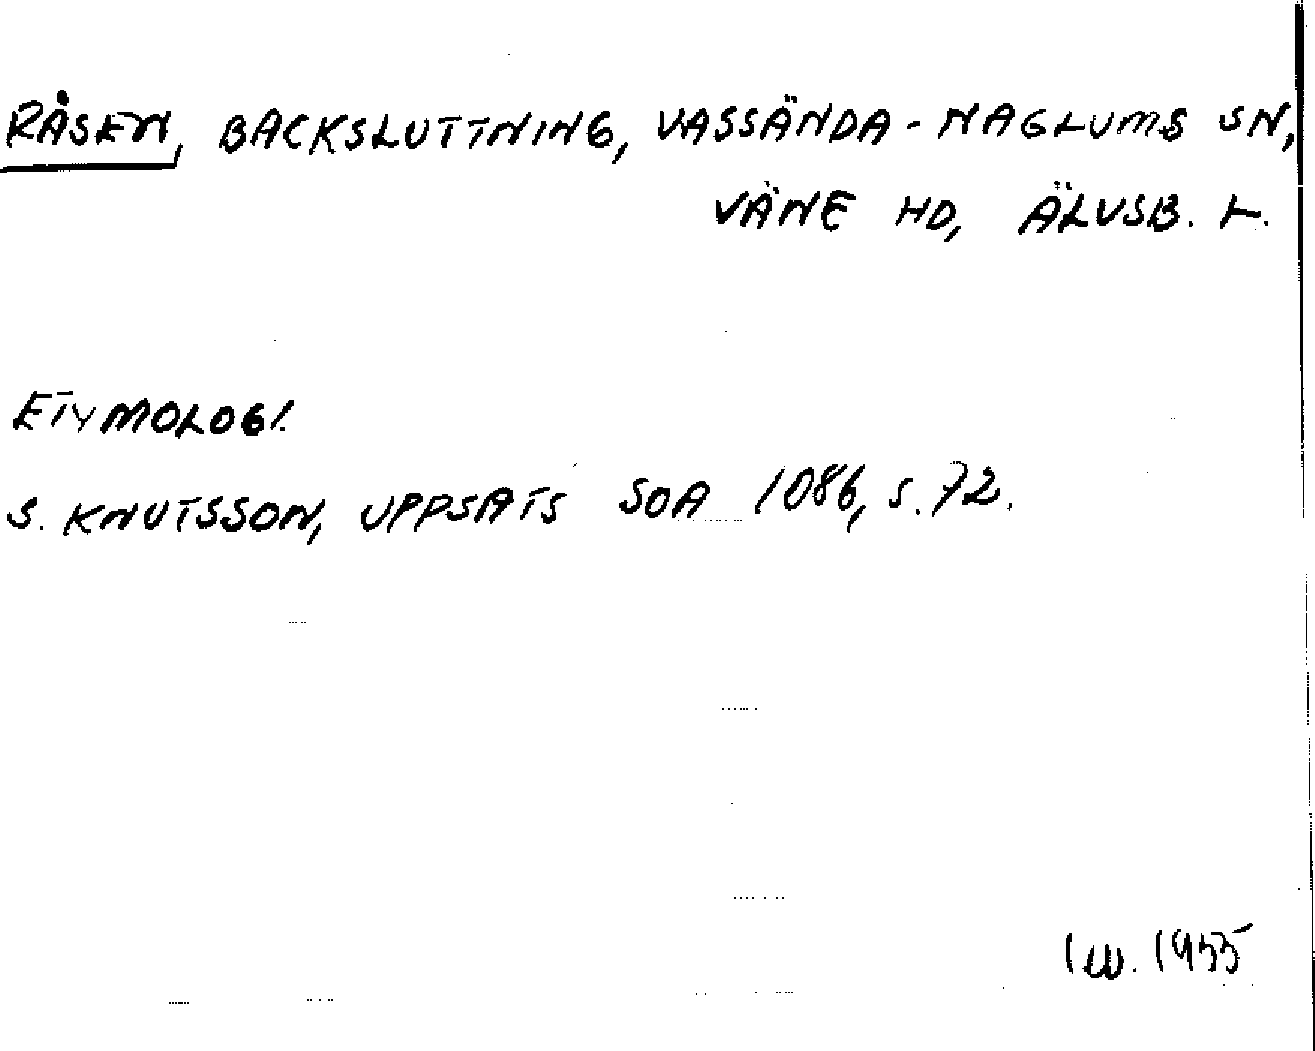 RÅSEN, BACKSLUTTNING, VASSÄNDA-NAGLUMS SN,
VÄNE HD, ÄLVSB. L.
ETYMOLOGI.
S. KNUTSSON, UPPSATS SOA 1086, S. 72.
IW. 1955